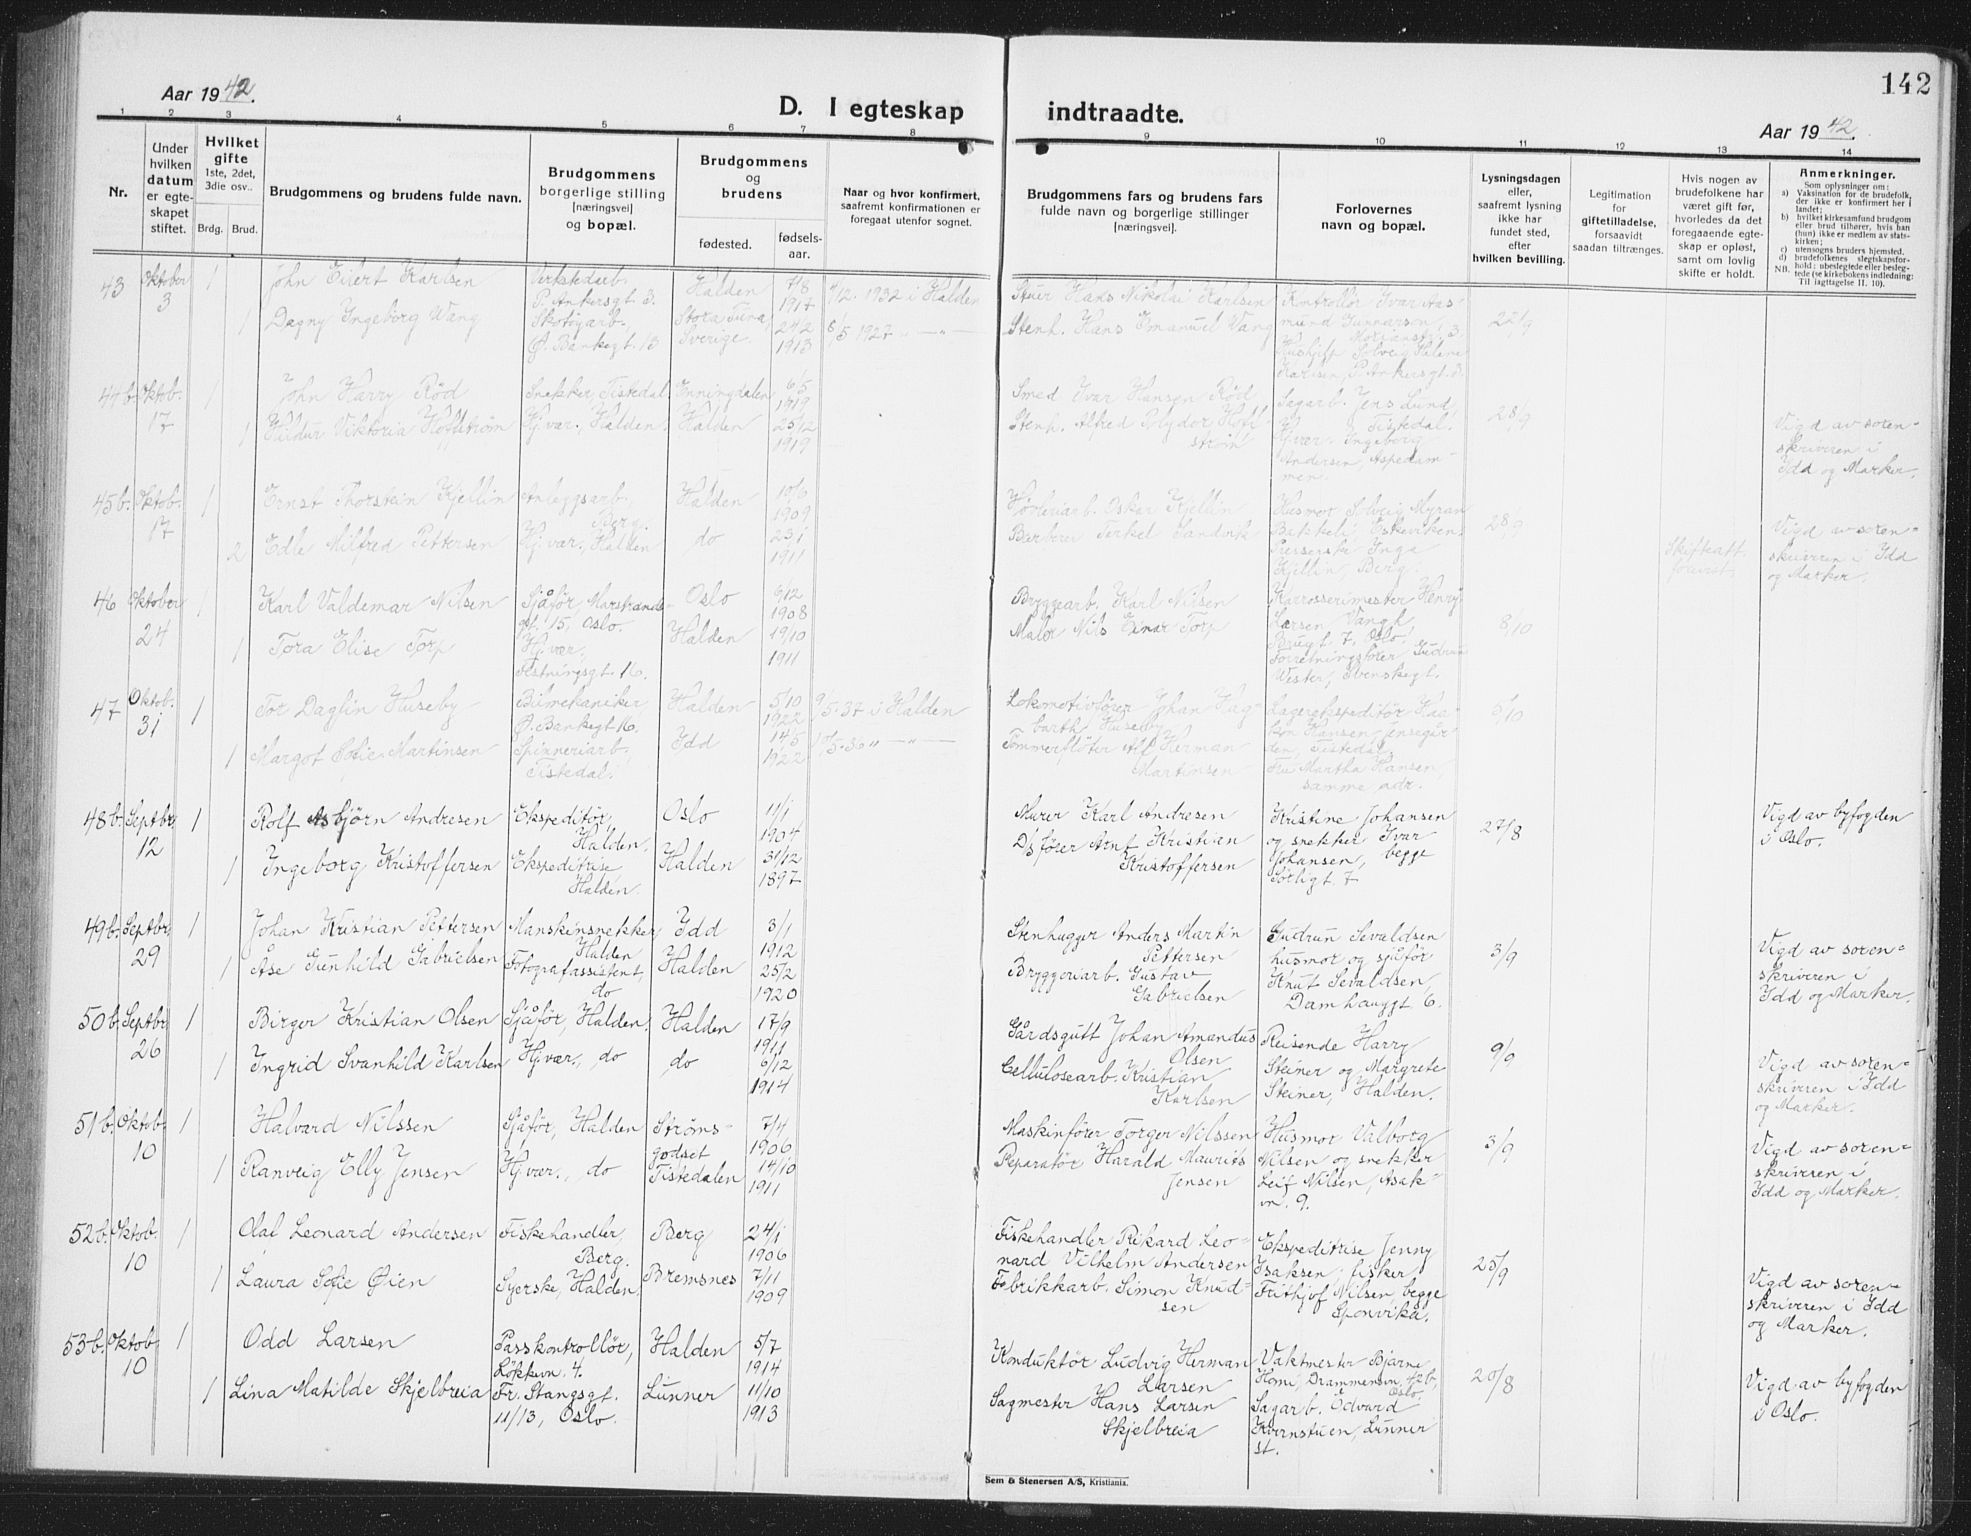 142
Aar 1942.
D. I egteskap indtraadte.
Aar 1942.
1 2 3 4 5 6 7 8 9 10 11 12 13 14
Nr.
Under
hvilken
datum
er egte-
skapet
stiftet.
Hvilket
gifte
1ste, 2det,
3die osv..
Brdg. Brud.
Brudgommens og brudens fulde navn.
Brudgommens
borgerlige stilling
[næringsvei]
og bopæl.
Brudgommens
og
brudens
fødested.
fødsels-
aar.
Naar og hvor konfirmert,
saafremt konfirmationen er
foregaat utenfor sognet.
Brudgommens fars og brudens fars
fulde navn og borgerlige stillinger
[næringsvei].
Forlovernes
navn og bopæl.
Lysningsdagen
eller,
saafremt lysning
ikke har
fundet sted,
efter
hvilken bevilling.
Legitimation
for
giftetilladelse,
forsaavidt
saadan tiltrænges.
Hvis nogen av
brudefolkene har
været gift før,
hvorledes da det
foregaaende egte-
skap er opløst,
samt om lovlig
skifte er holdt.
Anmerkninger.
Som oplysninger om:
a) Vaksination for de brudefolk,
der ikke er konfirmert her i
landet;
b) hvilket kirkesamfund brudgom
eller brud tilhører, hvis han
(hun) ikke er medlem av stats-
kirken;
c) utensogns bruders hjemsted.
d) brudefolkenes slegtskapsfor-
hold: ubeslegtede eller besleg-
tede (se kirkebokens indledning:
NB. Til iagttagelse II. 10).
43 Oktober
3
1 John Eiert Karlsen
Verkstedarb.
P. Ankersgt. 3.
Halden
7/8
1917
7/2. 1932 i Halden
Stuer Hans Nikolai Karlsen
Kontrollör Ivar Aas-
mund Gunnarson,
22/9
1 Dagny Ingeborg Wang
Skotöyarb.
Ø. Bankegt. 13
Stora Tuna,
Sverige.
24/2
1913
8/5 1927 " — " —
Stenh. Hans Emanuel Wang
Hushjelp Solveig Helene
Karlsen, P. Ankersgt. 3.
44b. Oktob.
17
1 John Harry Röd
Snekker, Tistedal
Enningdalen
6/5
1919
Smed Ivar Hansen Röd
Sagarb. Jens Lund,
Tistedal.
28/9
1 Hildur Viktoria Holtström
Hj.vær., Halden.
Halden
25/12
1919
Stenh. Alfred Polydor Holt-
ström
Hj.vær. Ingeborg
Andersen, Aspedam-
men.
Vigd av soren-
skriveren i
Idd og Marker.
45b. Oktob.
17
1 Ernst Thorstein Kjellin
Anleggsarb.,
Berg.
Halden
10/6
1909
Oskar Kjellin
Husmor Solveig Myran
Bakkeli, Eskeviken.
28/9
2 Edle Milfred Pettersen
Hj.vær., Halden
do
23/1
1911
Barberer Terkel Sandvik
Inga
Kjellin, Berg.
Skifteatt.
forevist.
Vigd av soren-
skriveren i Idd
og Marker.
46 Oktober
24
1 Karl Valdemar Nilsen
Sjåför, Marstrands-
gt. 15, Oslo.
Oslo
6/12
1908
Bryggearb. Karl Nilsen
Karrosserimester Henry
Larsen Vangk,
Brugt. 7, Oslo.
8/10
1 Tora Elise Torp
Hj.vær.
Festningsgt. 16.
Halden
19/10
1911
Maler Nils Einar Torp
Forretningsförer Gudrun
Wester, Svenskegt.
47 Oktob.
31
1 Tor Dagfin Huseby
Bilmekaniker,
Ø. Bankegt 16.
Halden
5/10
1922
9/5. 37 i Halden
Lokomotivförer Johan Hag-
barth Huseby
Lagerekspeditör Haa-
kon Hansen, Jensegår-
den, Tistedal.
6/10
1 Margot Sofie Martinsen
Spinneriarb,
Tistedal.
Idd
14/5
1922
10/5. 36 " — " —
Tömmerflöter Alf Herman
Martinsen
Fru Martha Hansen,
samme adr.
48b. Septbr.
12
1 Rolf Asbjörn Andresen
Ekspeditör,
Halden.
Oslo
11/1
1904
Murer Karl Andresen
Kristine Johansen
og snekker Ivar
Johansen, begge
Sörligt. 7
27/8
Vigd av byfogden
i Oslo.
1 Ingeborg Kristoffersen
Ekspeditrise
Halden.
Halden
31/12
1897
Ds förer Arnt Kristian
Kristoffersen
49b. Septbr.
29
1 Johan Kristian Pettersen
Manskinsnekker,
Halden
Idd
3/1
1912
Stenhugger Anders Martin
Pettersen
Gudrun Sevaldsen
husmor og sjåför
Knut Sevaldsen,
Damhauggt 6.
3/9
Vigd av soren-
skriveren i
Idd og Marker.
1 Åse Gunhild Gabrielsen
Fotografassistent,
do
Halden
25/2
1920
Bryggeriarb. Gustav
Gabrielsen
50b. Septbr
26
1 Birger Kristian Olsen
Sjåför, Halden.
Halden
17/9
1911
Gårdsgutt Johan Amandus
Olsen
Reisende Harry
Steiner og Margrete
Steiner, Halden.
9/9
Vigd av soren-
skriveren i Idd
og Marker.
1 Ingrid Svanhild Karlsen
Hj.vær., do
do
6/12
1914
Cellulosearb. Kristian
Karlsen
51b. Oktob.
10
1 Halvard Nilssen
Sjåför, Halden
Ströms-
godset
7/4
1906
Maskinförer Torger Nilssen
Husmor Valborg
Nilsen og snekker
Leif Nilsen, Asak-
vn. 9.
3/9
Vigd av soren-
skriveren i
Idd og Marker.
1 Ranveig Elly Jensen
Hj.vær., do
Tistedalen
14/10
1911
Reparatör Harald Maurits
Jensen
52b. Oktob.
10
1 Olaf Leonard Andersen
Fiskehandler,
Berg.
Berg
24/1
1906
Fiskehandler Rikard Leo-
nard Vilhelm Andersen
Ekspeditrise Jenny
Isaksen, fisker
Frithjof Nilsen, begge
Sponvika.
25/9
Vigd av soren-
skriveren i Idd
og Marker.
1 Laura Sofie Øien
Syerske, Halden.
Bremsnes
7/11
1909
Fabrikkarb. Simon Knud-
sen
53b. Oktob.
10
1 Odd Larsen
Passkontrollör,
Løkkevn. 4.
Halden
5/7
1914
Konduktör Ludvig Herman
Larsen
Vaktmester Bjarne
Homi, Drammensvn. 42b,
Oslo.
20/8
Vigd av byfogden
i Oslo.
1 Lina Matilde Skjelbreia
Fr. Stangsgt.
11/13, Oslo.
Lunner
11/10
1913
Sagmester Hans Larsen
Skjelbreia
Sagarb. Edvard
Kvernstuen, Lunner
st.
Sem & Stenersen A/S, Kristiania.